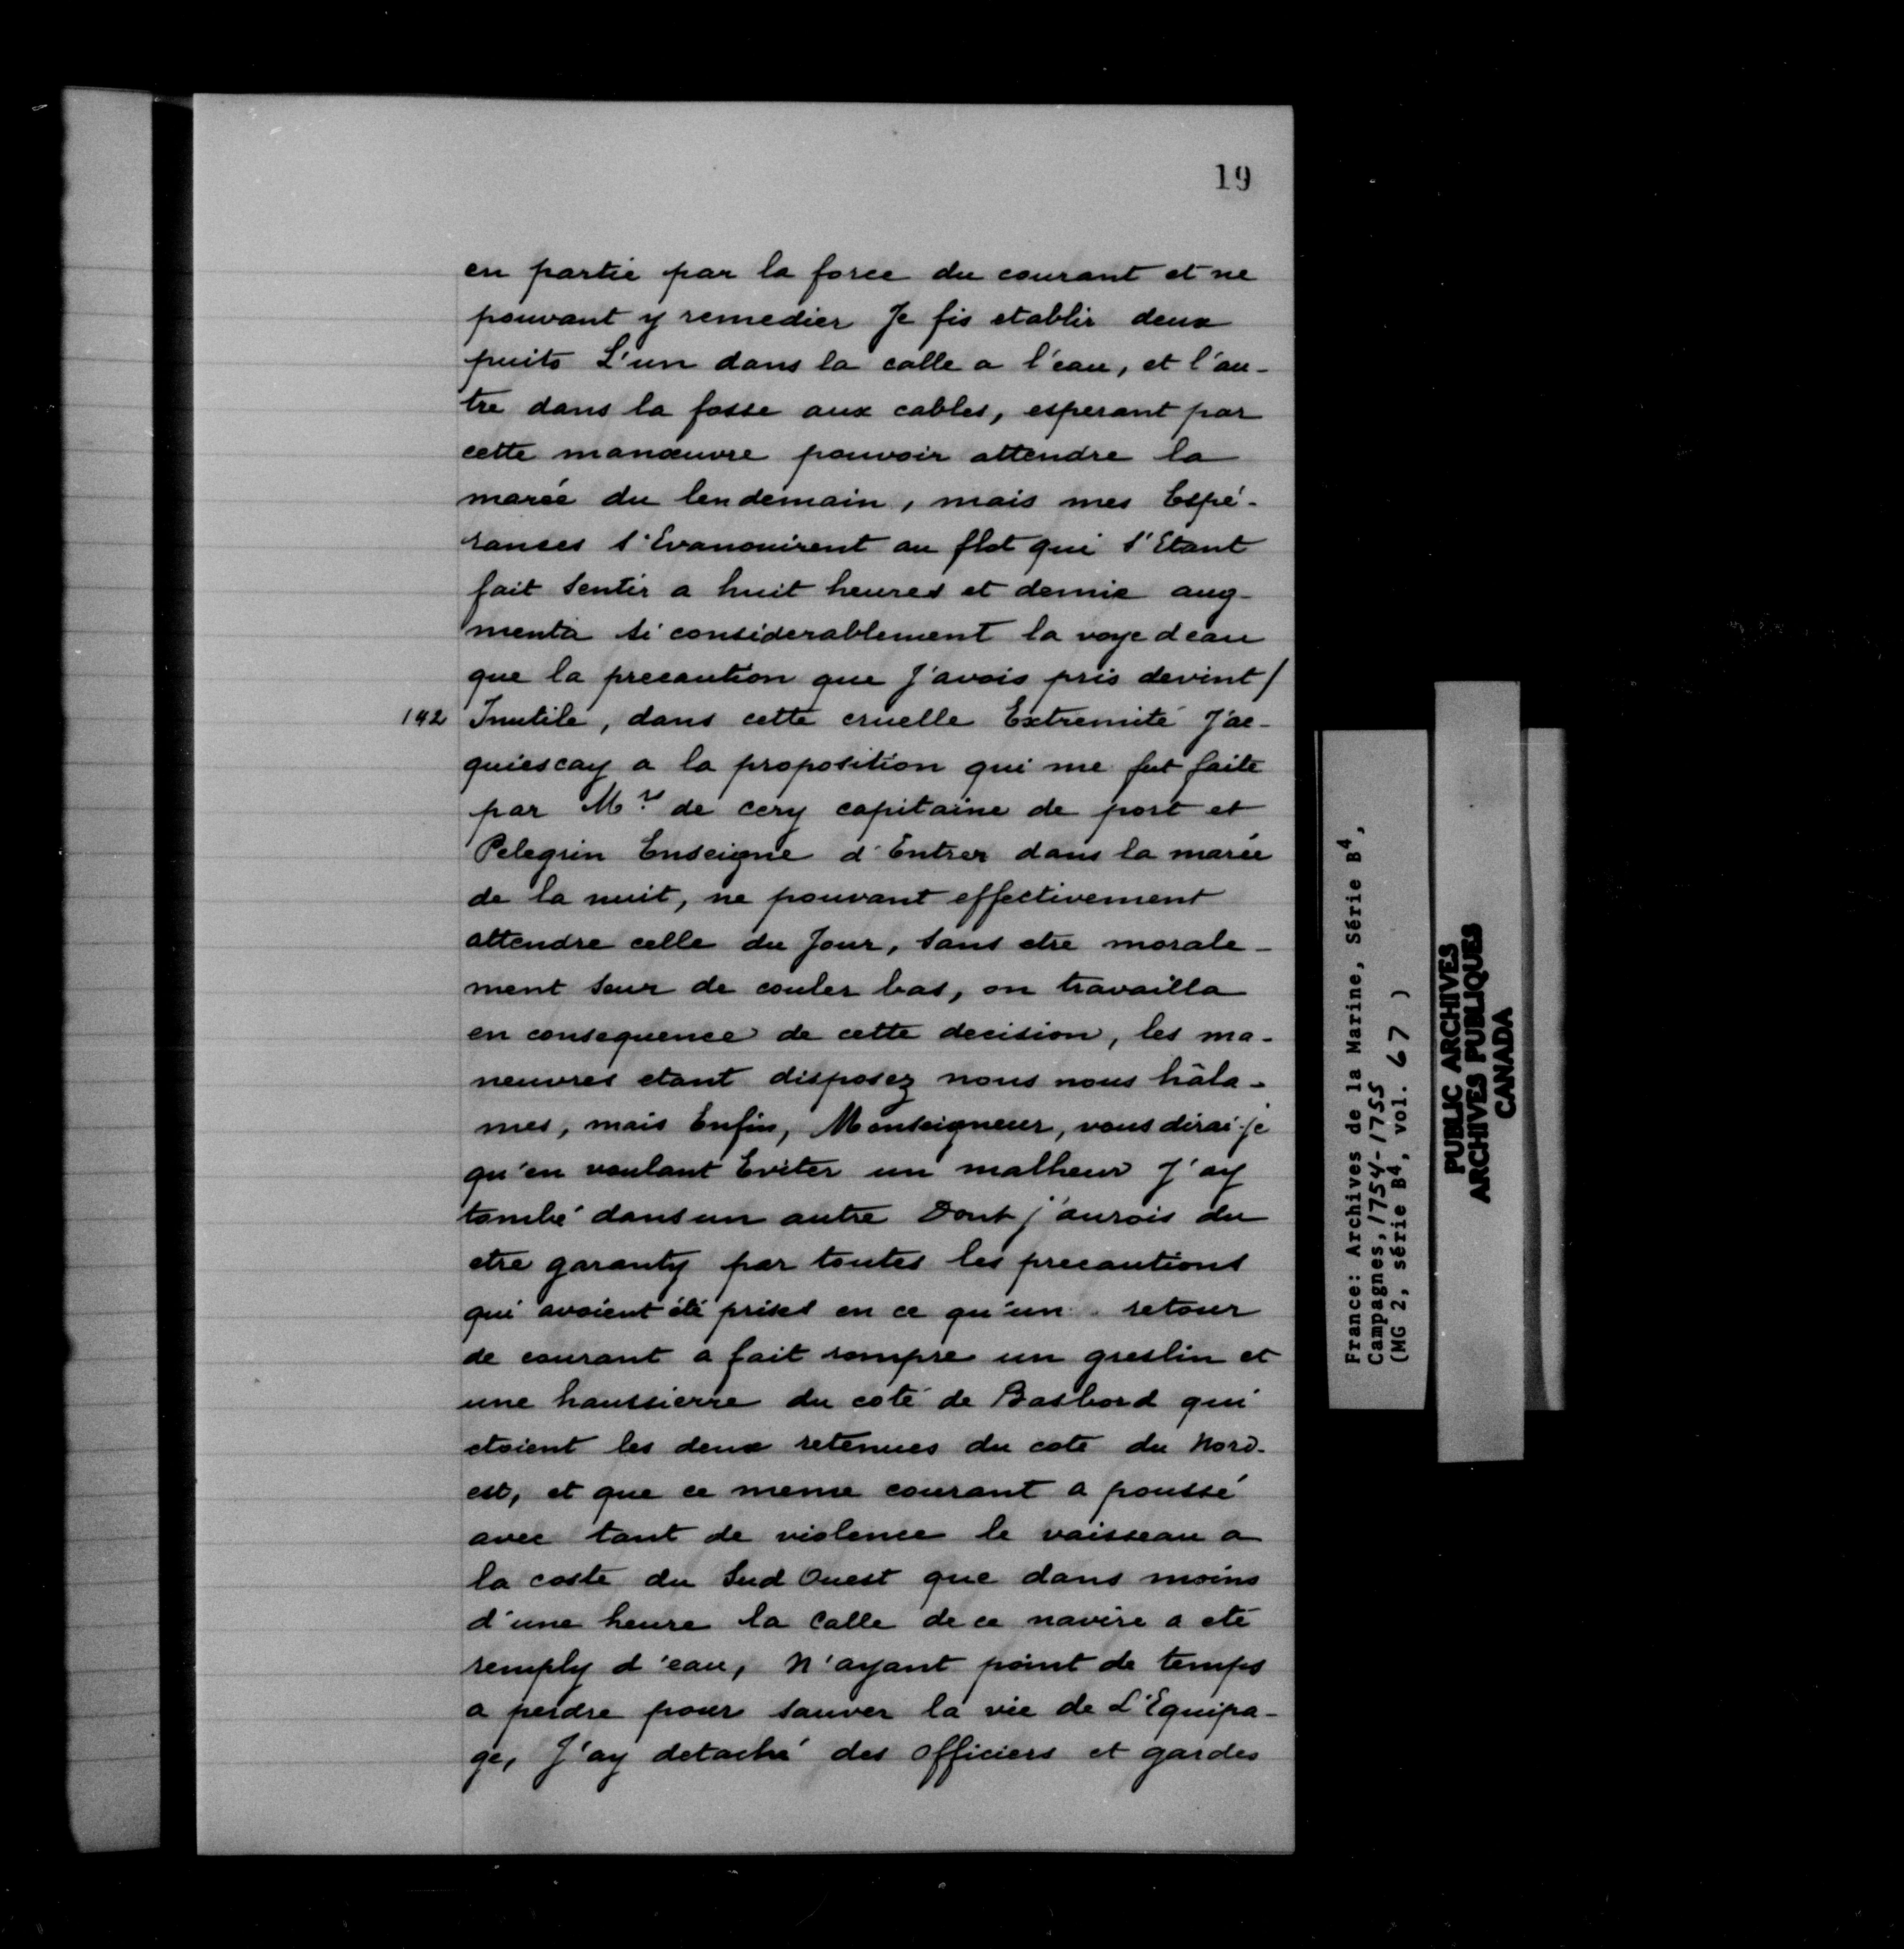 19
en partie par la force du courant et ne
pouvant y remedier Je fis etablir deux
puits L'un dans la calle a l'eau, et l'au-
tre dans la fosse aux cables, esperant par
cette manœuvre pouvoir attendre la
marée du lendemain, mais mes Espé-
rances s'Evanouirent au flot qui s'Etant
fait sentir a huit heures et demie aug-
menta si considerablement la voye deau
que la precaution que J'avois pris devint/
142 Inutile, dans cette cruelle Extremité J'ac-
quiescay a la proposition qui me fut faite
par Mr de cery capitaine de port et
Pelegrin Enseigne d'Entrer dans la marée
de la nuit, ne pouvant effectivement
attendre celle du Jour, sans etre morale-
ment seur de couler bas, on travailla
en consequence de cette decision, les ma-
neuvres etant disposez nous nous hâla-
mes, mais Enfin, Monseigneur, vous dirai-je
qu'en voulant Eviter un malheur J'ay
tombé dans un autre Dont j'aurois du
etre garanty par toutes les precautions
qui avoient été prises en ce qu'un retour
de courant a fait rompre un greslin et
une haussierre du coté de Basbord qui
etoient les deux retenues du coté du Nord-
est, et que ce meme courant a poussé
avec tant de violence le vaisseau a
la coste du Sud Ouest que dans moins
d'une heure la Calle de ce navire a eté
remply d'eau, N'ayant point de temps
a perdre pour sauver la vie de L'Equipa-
ge, J'ay detaché des officiers et gardes
France: Archives de la Marine, Série B4,
Campagnes, 1754-1755
(MG 2, série B4, vol. 67 )
PUBLIC ARCHIVES
ARCHIVES PUBLIQUES
CANADA